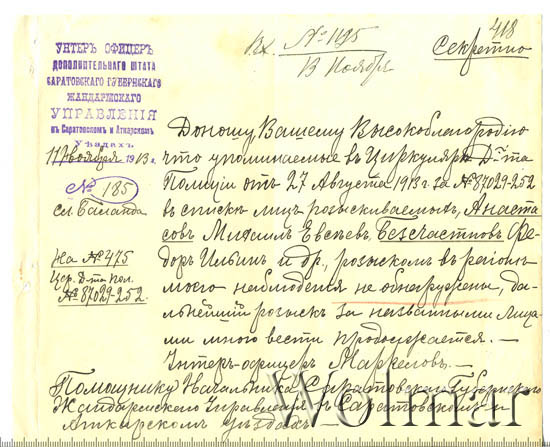 418
Вх. № 1195
Секретно
13 Ноября
УНТЕРЪ ОФИЦЕРЪ
ДОПОЛНИТЕЛЬНАГО ШТАТА
САРАТОВСКАГО ГУБЕРНСКАГО
ЖАНДАРМСКАГО
УПРАВЛЕНІЯ
въ Саратовскомъ и Аткарскомъ
Уѣздахъ
11 Ноября 1913 г.
№ 185
сл. Баланда
На № 475
Цир. Д-та пол.
№ 87029-252.
Доношу Вашему Высокоблагородію
что упоминаемые въ Циркулярѣ Д-та
Полиціи отъ 27 Августа 1913 г. за № 87029-252
въ спискѣ лицъ розыскиваемыхъ, Анаста
совъ Михаилъ Евсѣевъ, Безсчастновъ Ѳе-
доръ Ильинъ и др., розыскомъ въ районѣ
моего наблюденія не обнаружены, даль-
нѣйшій розыскъ за названными лица-
ми мною вести продолжается. —
Унтеръ-офицеръ Маркеловъ. —
Помощнику Начальника Саратовскаго Губернскаго
Жандармскаго Управленія въ Саратовскомъ и
Аткарскомъ уѣздахъ
Wolmar